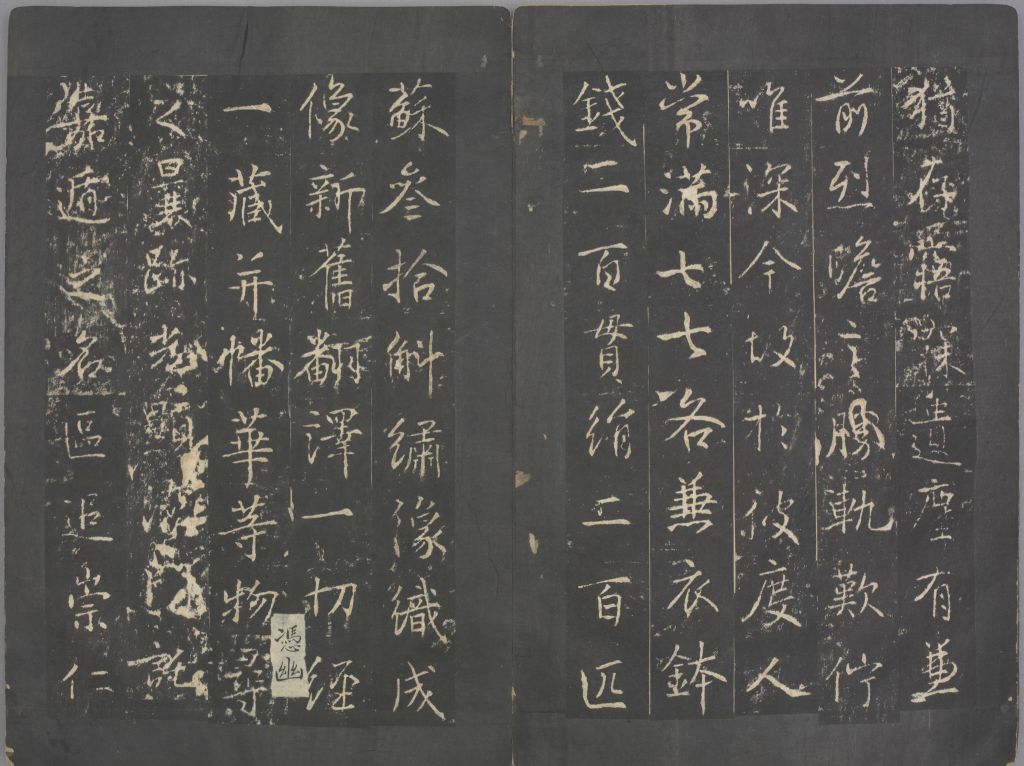 猶存無暋深 追塵有兼
前烈瞻言勝軌歎佇
唯深今故於彼度人
常滿七七各兼衣鉢
錢二百貫絹二百匹
蘇叁拾斛繡像織成
像新舊翻譯一切經
一藏并幡華等物
之曩跡
嘉遁之名區追崇仁
憑幽